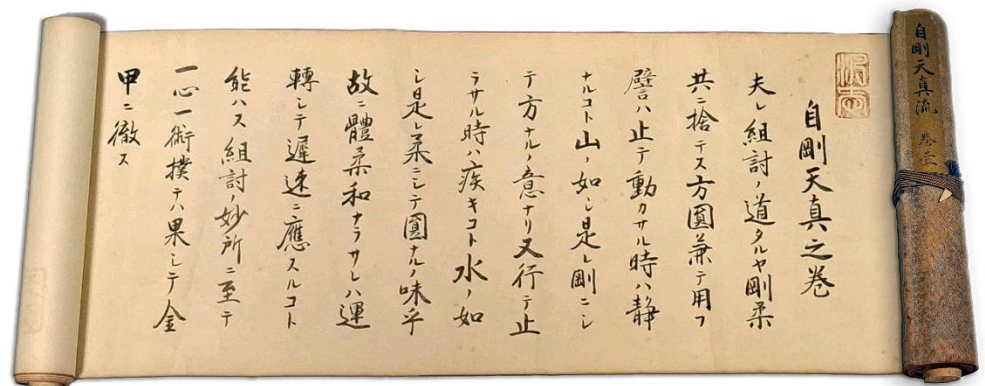 自剛天真之巻
夫レ組討ノ道タルヤ剛柔
共ニ捨テス方圓兼テ用フ
譬ハ止テ動カサル時ハ静
ナルコト山ノ如シ是レ剛ニシ
テ方ナルノ意ナリ又行テ止
ラサル時ハ疾キコト水ノ如
シ是レ柔ニシテ圓ナルノ味乎
故ニ體柔和ナラサレハ運
轉シテ遅速ニ應スルコト
能ハス組討ノ妙所ニ至テ
一心一術撲テハ果シテ金
甲ニ徹ス
自剛天真流 巻壱